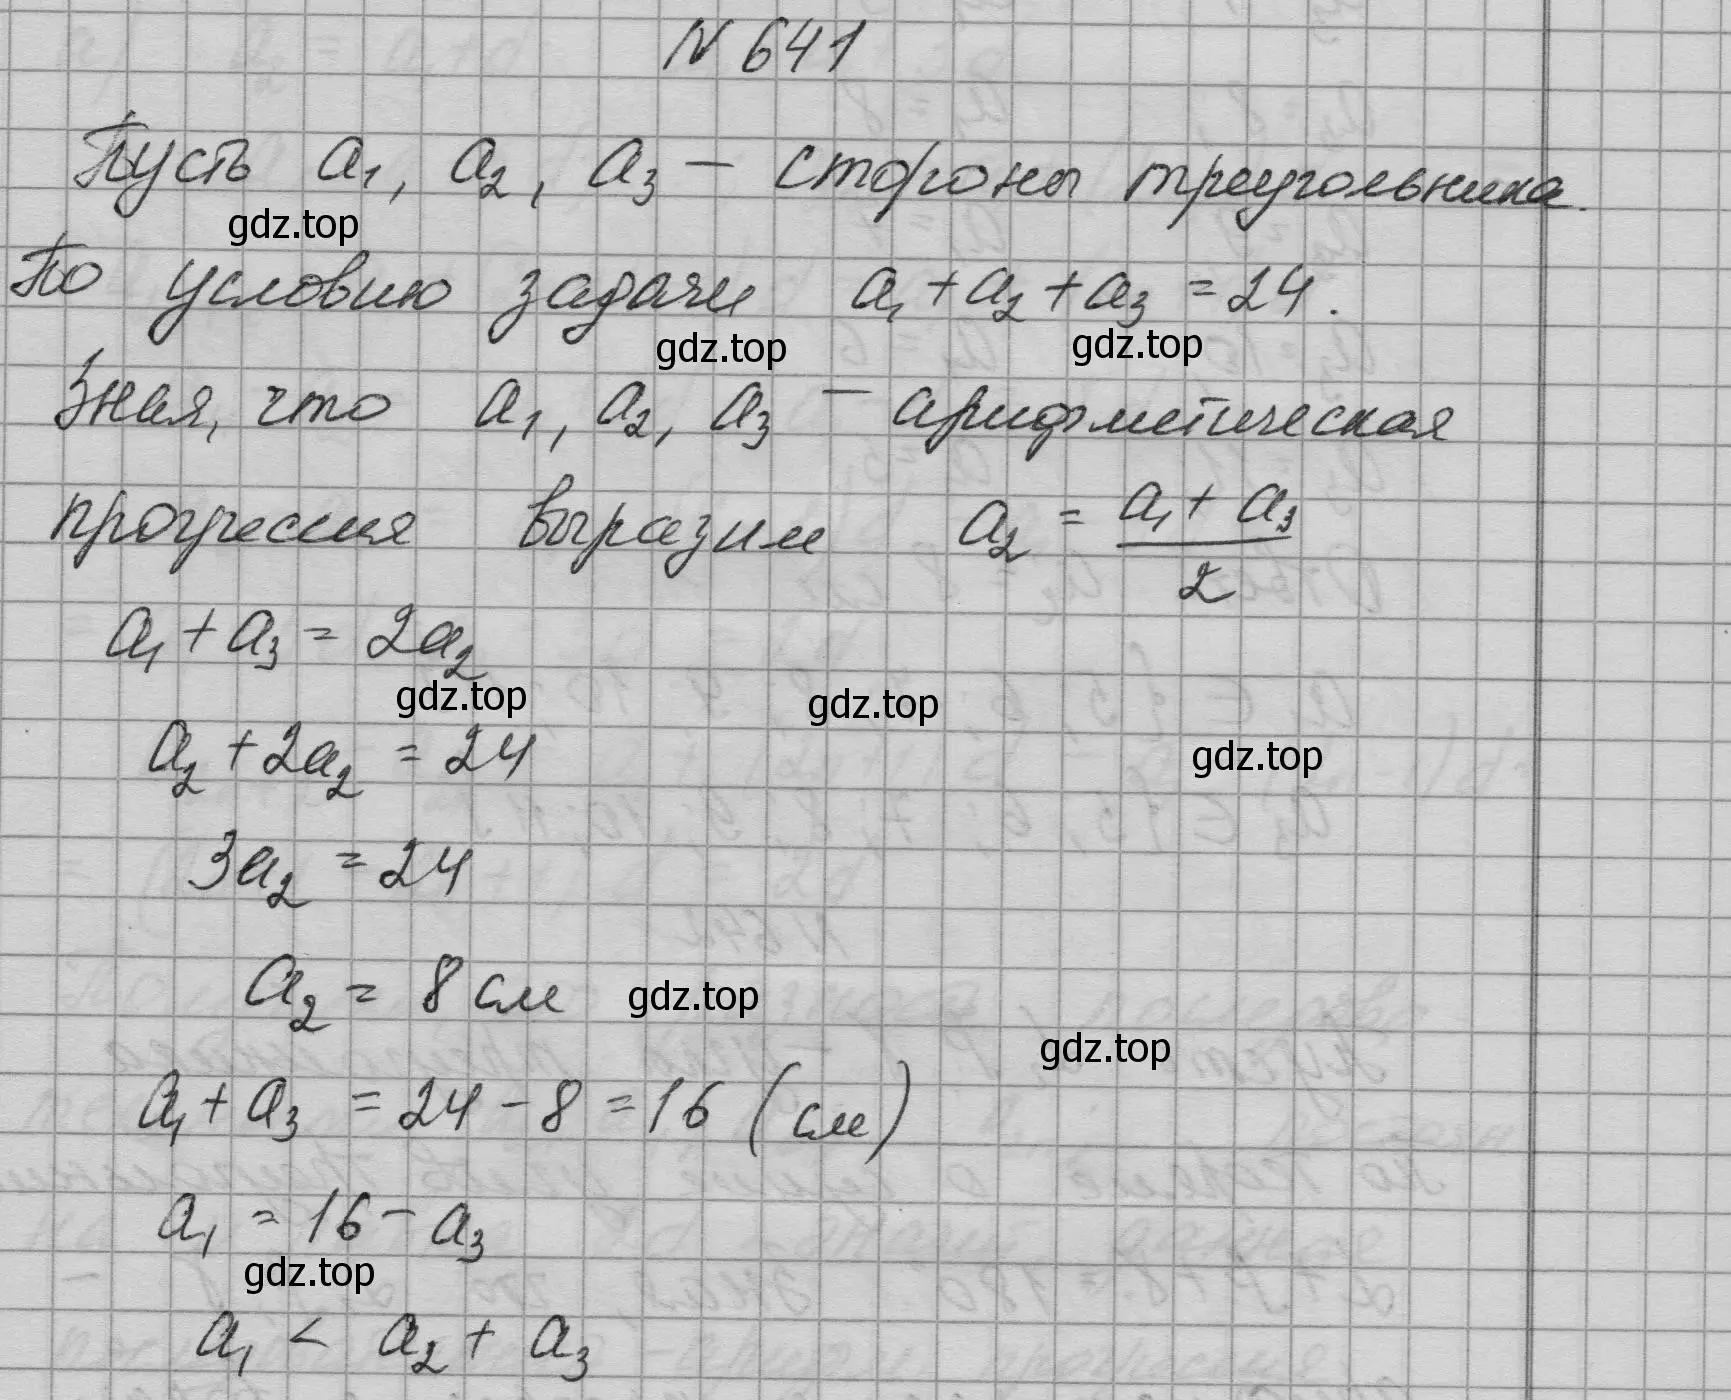 N 641
Пусть a₁, a₂, a₃ – стороны треугольника.
gdz.top
По условию задачи a₁ + a₂ + a₃ = 24.
gdz.top gdz.top
Зная, что a₁, a₂, a₃ – арифметическая
прогрессия выразим a₂ = (a₁ + a₃)/2
a₁ + a₃ = 2a₂
gdz.top gdz.top
a₂ + 2a₂ = 24
gdz.top
3a₂ = 24
a₂ = 8 см
gdz.top
gdz.top
a₁ + a₃ = 24 - 8 = 16 (см)
a₁ = 16 - a₃
gdz.top
a₁ < a₂ + a₃